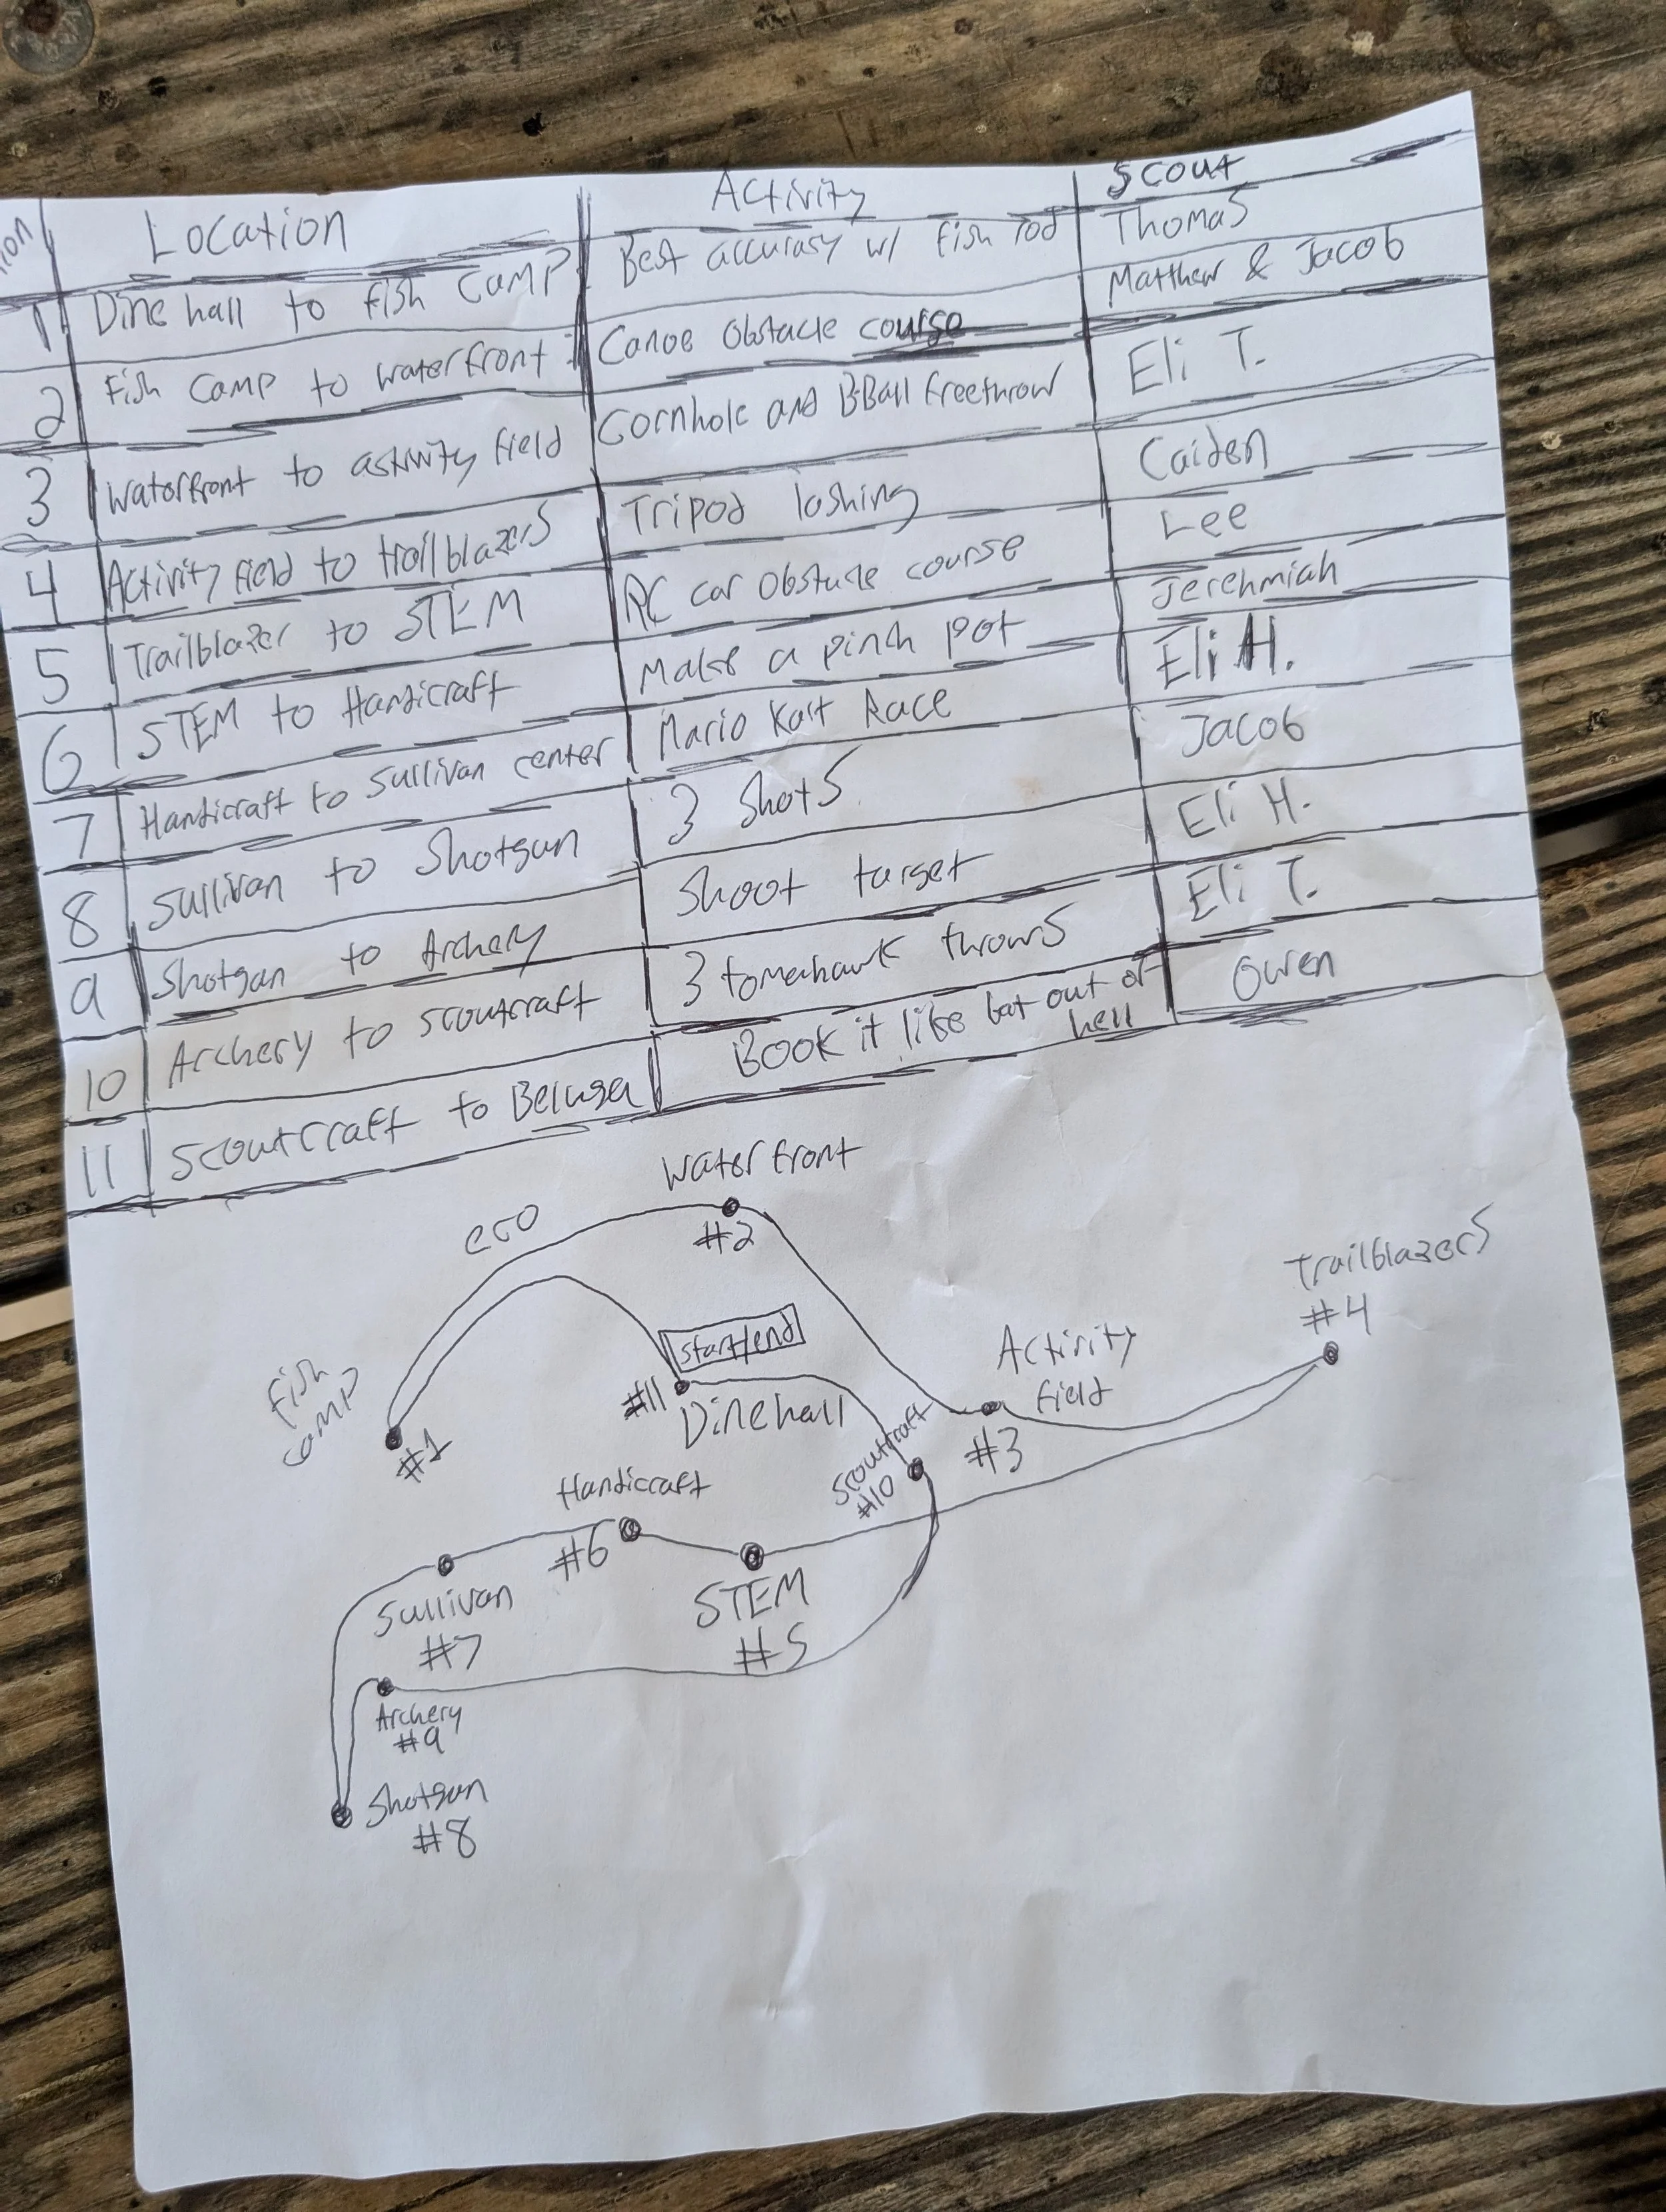 Location Activity Scout
1 Dine hall to Fish Camp Best accurasy w/ fish rod Thomas
2 Fish Camp to Waterfront Canoe Obstacle course Matthew & Jacob
3 Waterfront to activity field Cornhole and B-Ball freethrow Eli T.
4 Activity field to trailblazers Tripod lashing Caiden
5 Trailblazer to STEM RC car Obstacle course Lee
6 STEM to Handicraft Make a pinch pot Jerehmiah
7 Handicraft to Sullivan center Mario Kart Race Eli H.
8 Sullivan to Shotgun 3 Shots Jacob
9 Shotgun to Archery Shoot target Eli H.
10 Archery to scoutcraft 3 tomahawk throws Eli T.
11 Scoutcraft to Beluga Book it like bat out of hell Owen
Waterfront
#2
eco
Trailblazers
#4
start/end
#11
Dine hall
Activity
field
#3
Fish
camp
#1
Scoutcraft
#10
Handicraft
#6
STEM
#5
Sullivan
#7
Archery
#9
Shotgun
#8